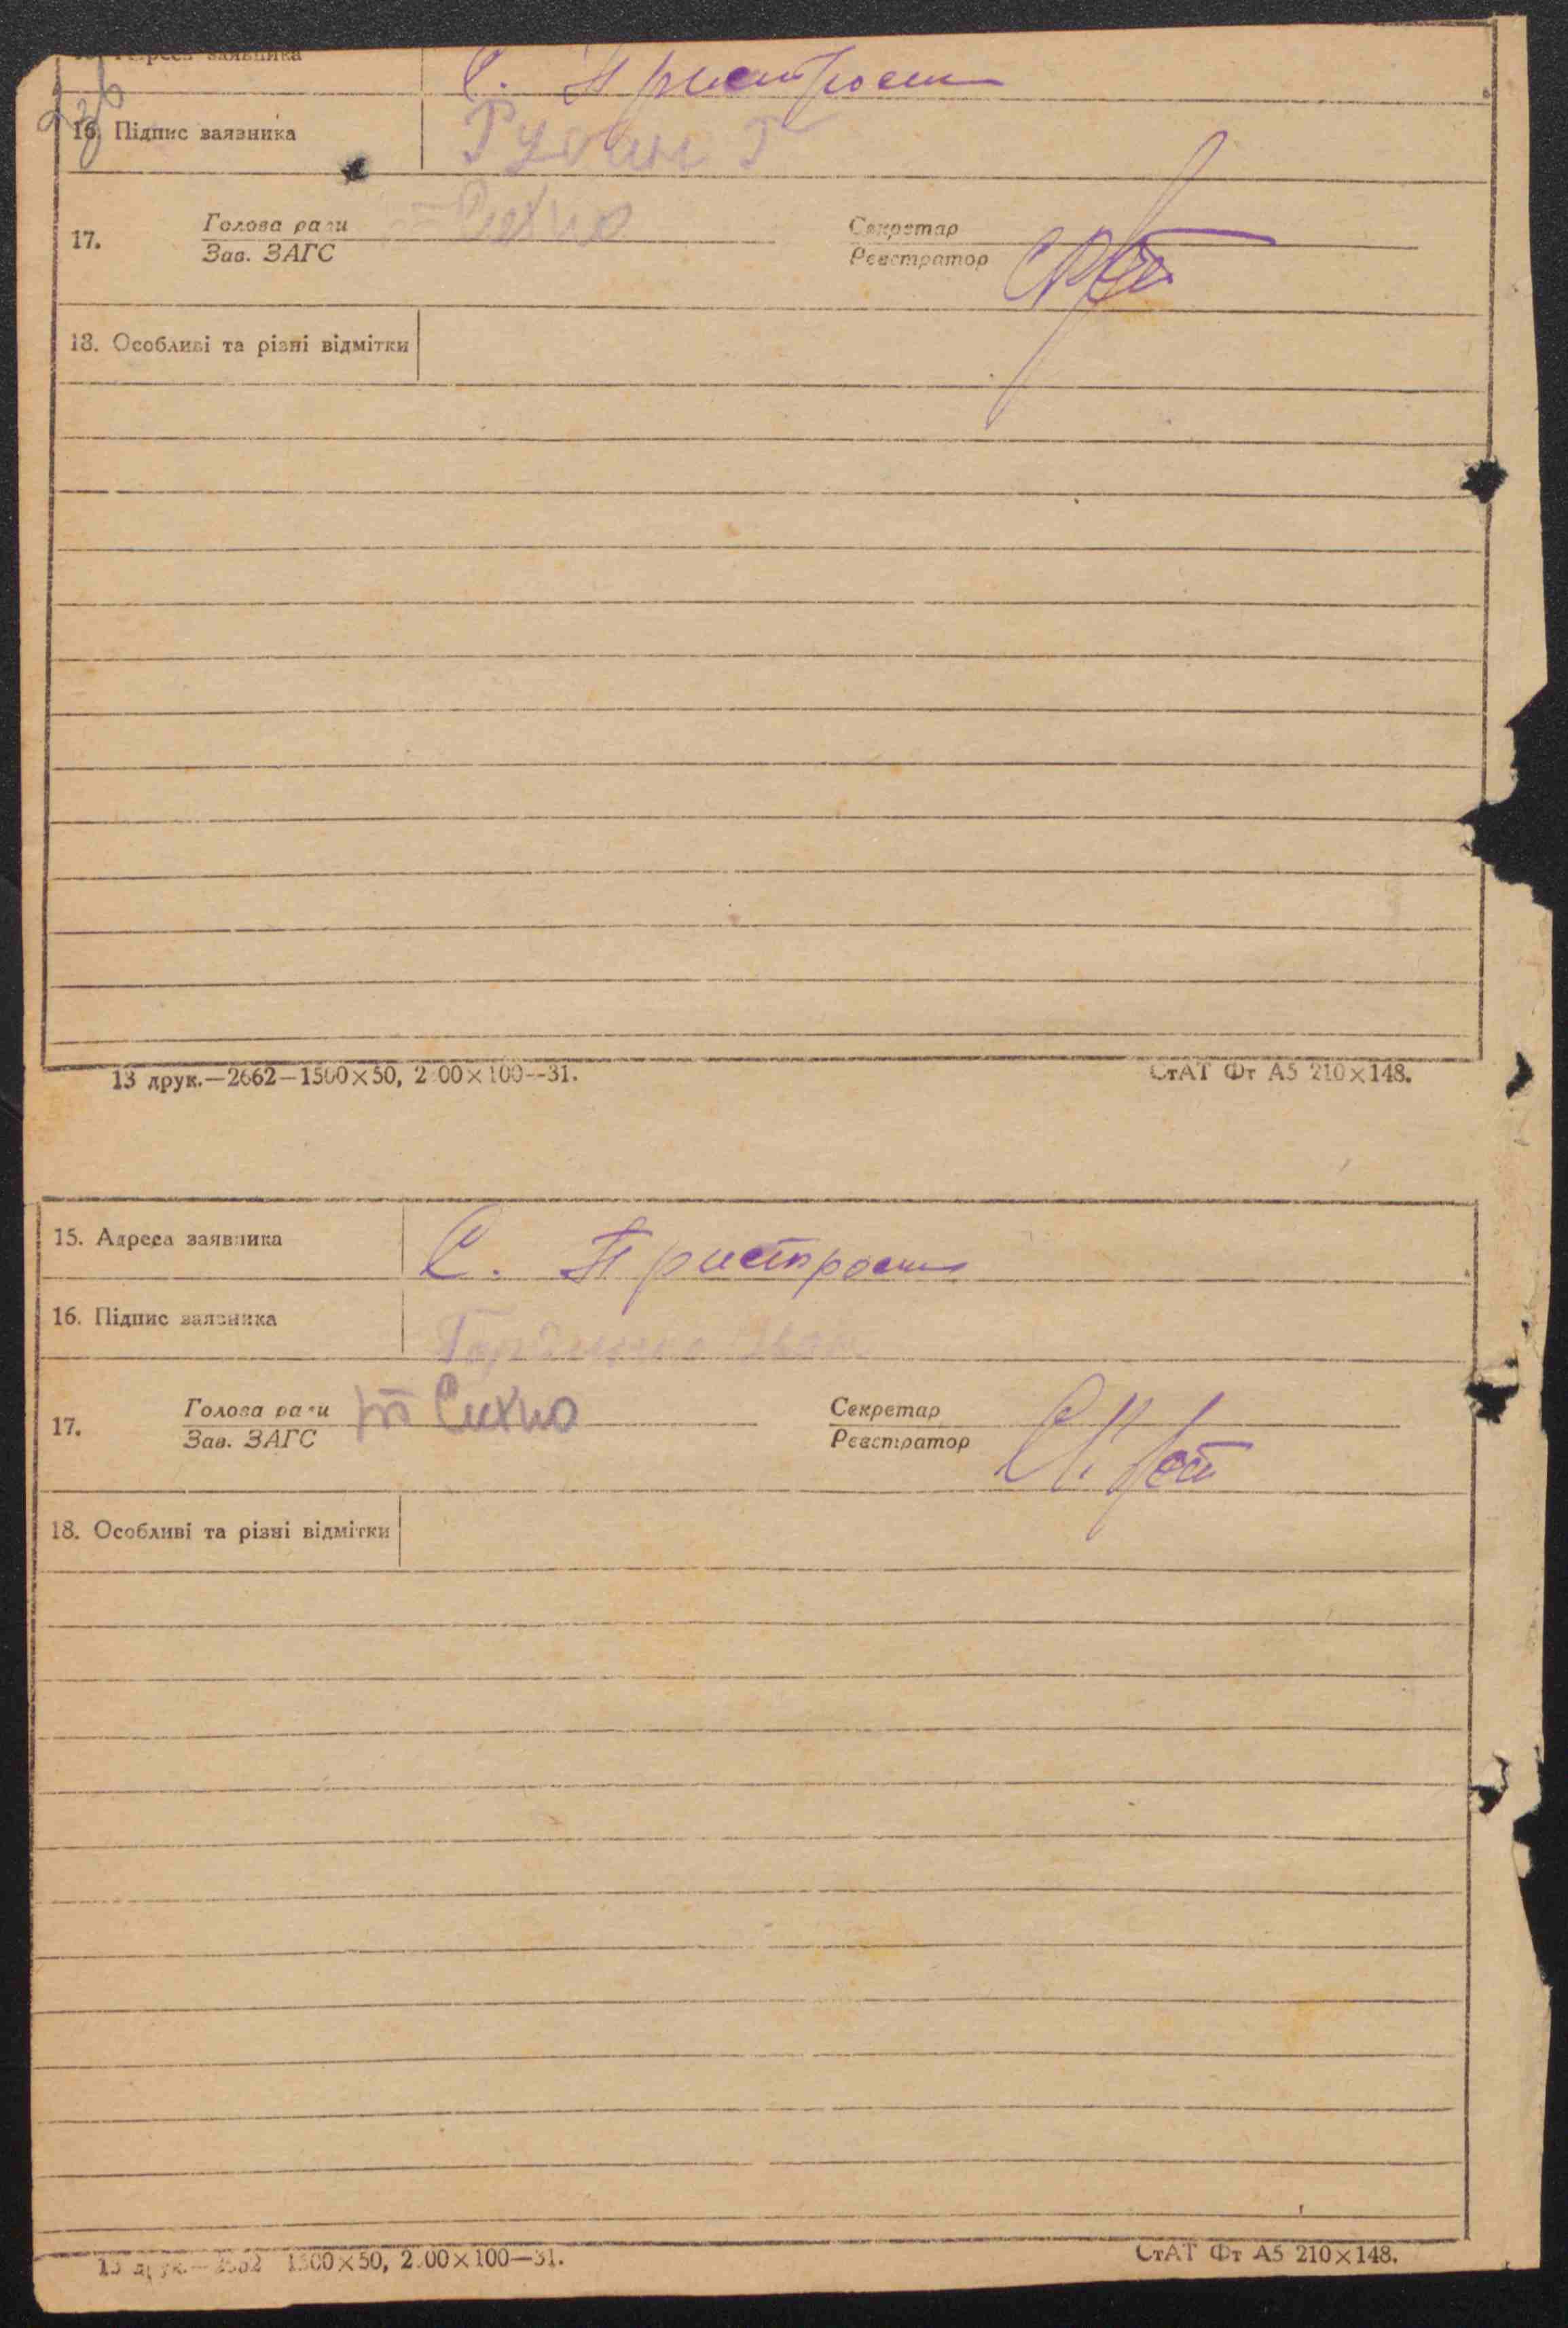 15. Адреса заявника С. Пристроми
16. Підпис заявника
17. Голова ради Сихно Секретар
Зав. ЗАГС Реєстратор
18. Особливі та різні відмітки
13 друк.—2662—1500×50, 2 00×100—31. СтАТ Фт А5 210×148.
15. Адреса заявника С. Пристроми
16. Підпис заявника
17. Голова ради Сихно Секретар
Зав. ЗАГС Реєстратор
18. Особливі та різні відмітки
13 друк.—2662 1500×50, 2 00×100—31. СтАТ Фт А5 210×148.